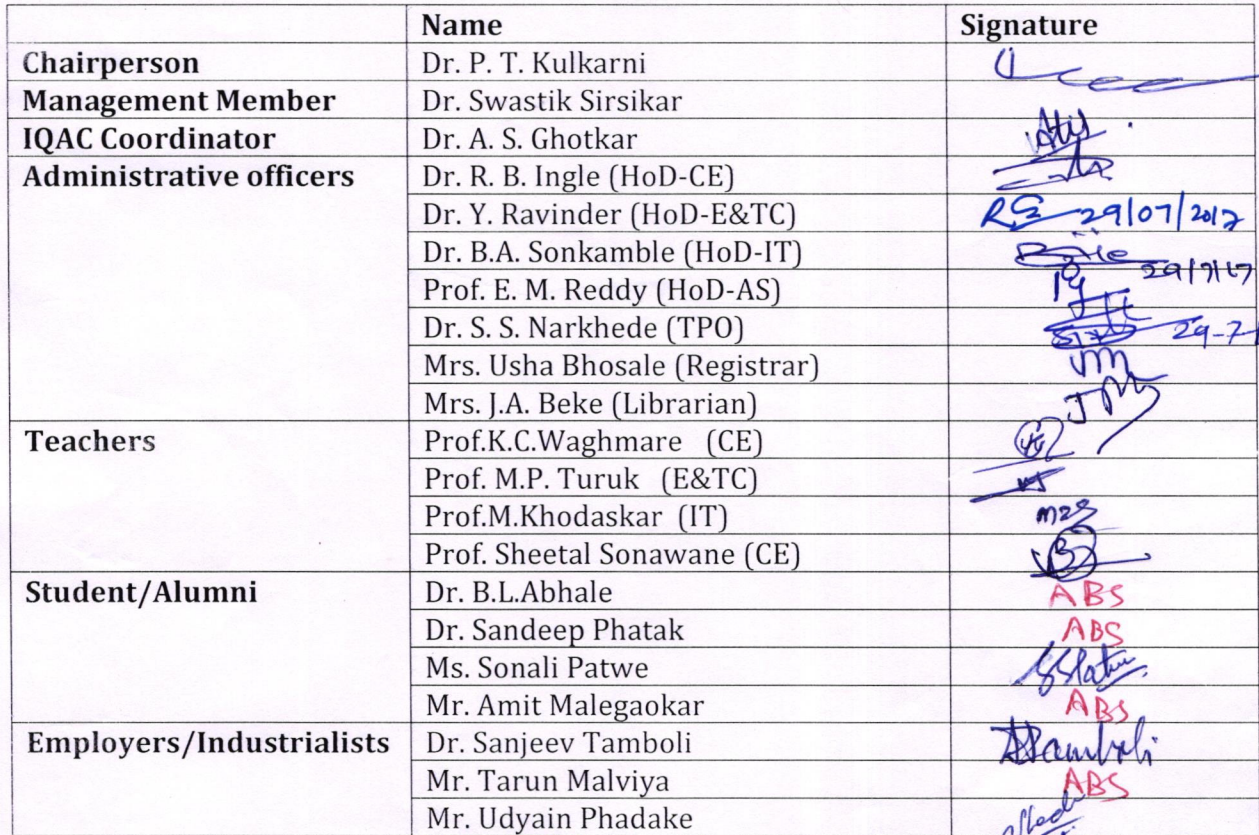 Name Signature
Chairperson Dr. P. T. Kulkarni
Management Member Dr. Swastik Sirsikar
IQAC Coordinator Dr. A. S. Ghotkar
Administrative officers Dr. R. B. Ingle (HoD-CE)
Dr. Y. Ravinder (HoD-E&TC) 29/07/2017
Dr. B.A. Sonkamble (HoD-IT)
Prof. E. M. Reddy (HoD-AS) 29/7/17
Dr. S. S. Narkhede (TPO) 29-7-
Mrs. Usha Bhosale (Registrar)
Mrs. J.A. Beke (Librarian)
Teachers Prof.K.C.Waghmare (CE)
Prof. M.P. Turuk (E&TC)
Prof.M.Khodaskar (IT)
Prof. Sheetal Sonawane (CE)
Student/Alumni Dr. B.L.Abhale ABS
Dr. Sandeep Phatak ABS
Ms. Sonali Patwe
Mr. Amit Malegaokar ABS
Employers/Industrialists Dr. Sanjeev Tamboli
Mr. Tarun Malviya ABS
Mr. Udyain Phadake